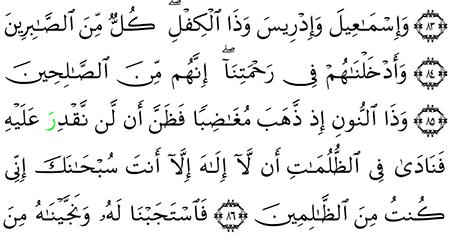 ﴿٨٣﴾ وَإِسْمَاعِيلَ وَإِدْرِيسَ وَذَا ٱلْكِفْلِ ۖ كُلٌّ مِّنَ ٱلصَّـٰبِرِينَ
﴿٨٤﴾ وَأَدْخَلْنَـٰهُمْ فِى رَحْمَتِنَآ ۖ إِنَّهُم مِّنَ ٱلصَّـٰلِحِينَ
﴿٨٥﴾ وَذَا ٱلنُّونِ إِذ ذَّهَبَ مُغَـٰضِبًا فَظَنَّ أَن لَّن نَّقْدِرَ عَلَيْهِ
فَنَادَىٰ فِى ٱلظُّلُمَـٰتِ أَن لَّآ إِلَـٰهَ إِلَّآ أَنتَ سُبْحَـٰنَكَ إِنِّى
كُنتُ مِنَ ٱلظَّـٰلِمِينَ ﴿٨٦﴾ فَٱسْتَجَبْنَا لَهُۥ وَنَجَّيْنَـٰهُ مِنَ